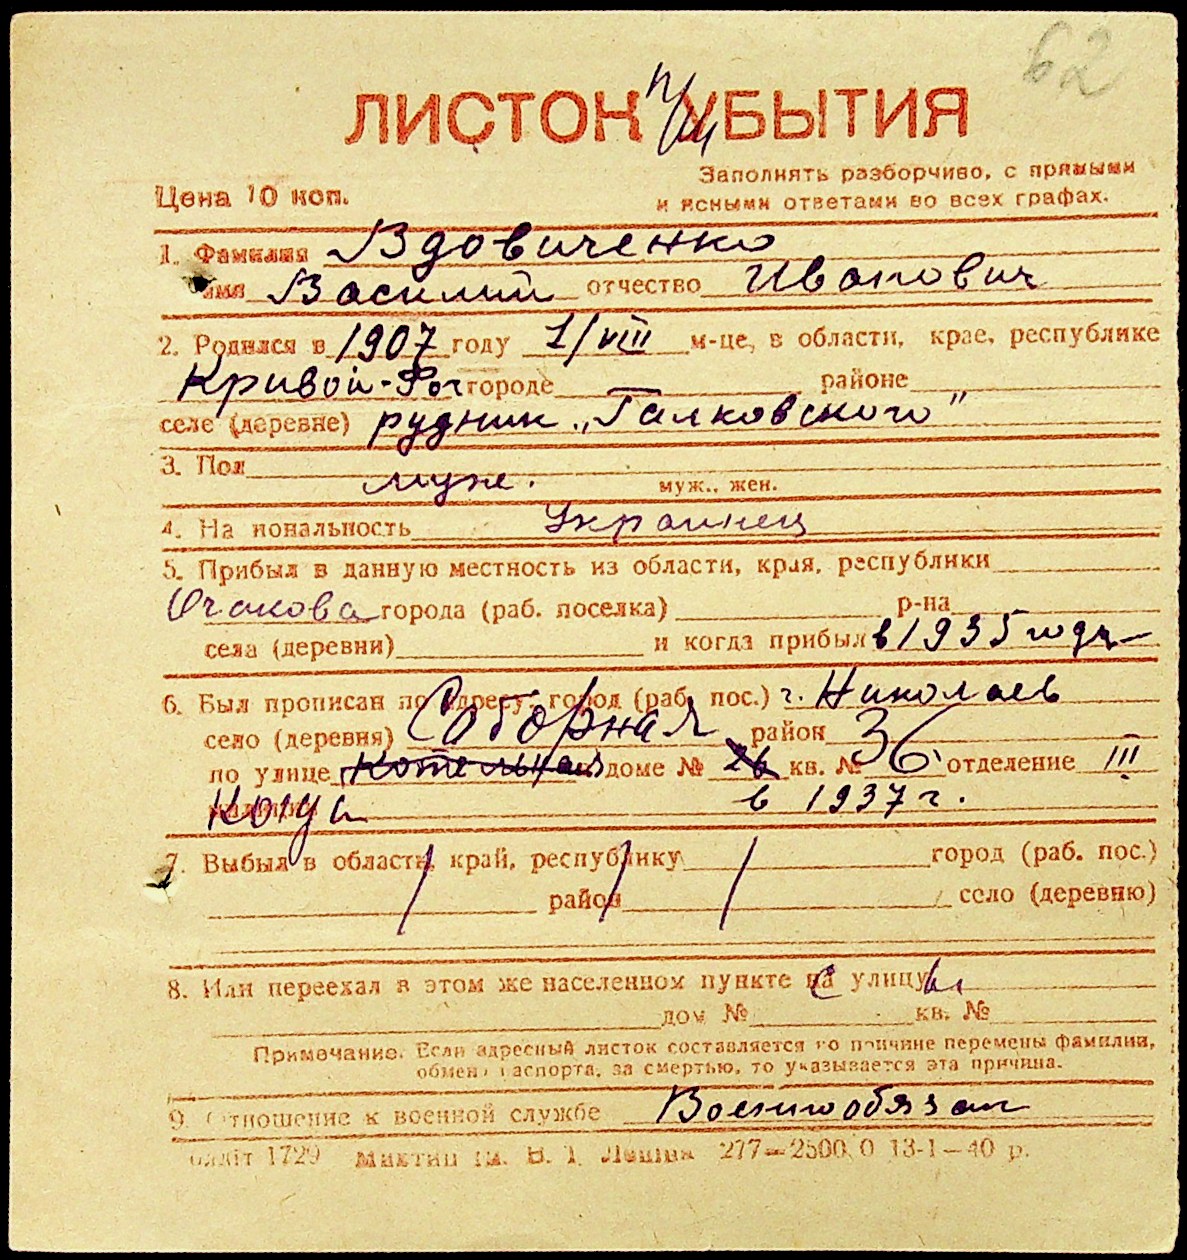 62
ЛИСТОК УБЫТИЯ
Цена 10 коп.
Заполнять разборчиво, с прямыми
и ясными ответами во всех графах.
1. Фамилия Вдовиченко
имя Василий отчество Иванович
2. Родился в 1907 году 1/VIII м-це, в области, крае, республике
Кривой-Рог городе — районе
селе (деревне) рудник „Галковского"
3. Пол муж.
муж., жен.
4. На иональность Украинец
5. Прибыл в данную местность из области, края, республики
Очакова города (раб. поселка) р-на
села (деревни) и когда прибыл в 1935 году
6. Был прописан по адресу: город (раб. пос.) г. Николаев
село (деревня) Соборная район
по улице Котельная доме № 26 кв. № 36 отделение III
Когда в 1937 г.
7. Выбыл в область, край, республику город (раб. пос.)
район село (деревню)
8. Или переехал в этом же населенном пункте на улицу
дом № кв. №
Примечание. Если адресный листок составляется по причине перемены фамилии,
обмена паспорта, за смертью, то указывается эта причина.
9. Отношение к военной службе Военнообязан
1729 277—2500 13-1—40 р.